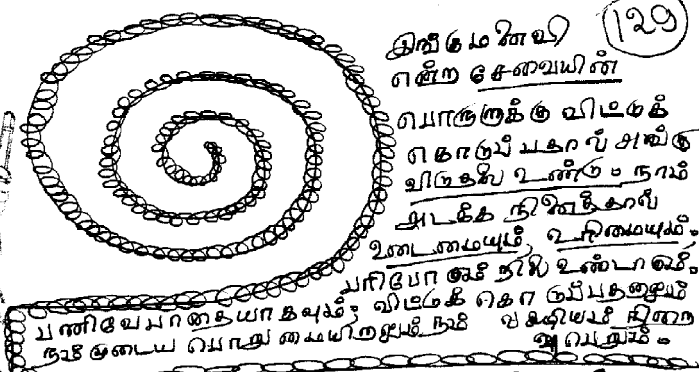 129
இங்கு மனைவி
என்ற சேவையின்
பொருளுக்கு விட்டுக்
கொடுப்பதால் அங்கு
விடுதலை உண்டு. நாம்
அடக்க நினைத்தால்
உடைமையும், உரிமையும்.
பரிபோகும் நிலை உண்டாகும்.
பணிவே பாதையாகவும், விட்டுக் கொடுப்பதையும்
நம்முடைய பொறுமையிறலும் நம் லட்சியம் நிறை
வு பெறும்.